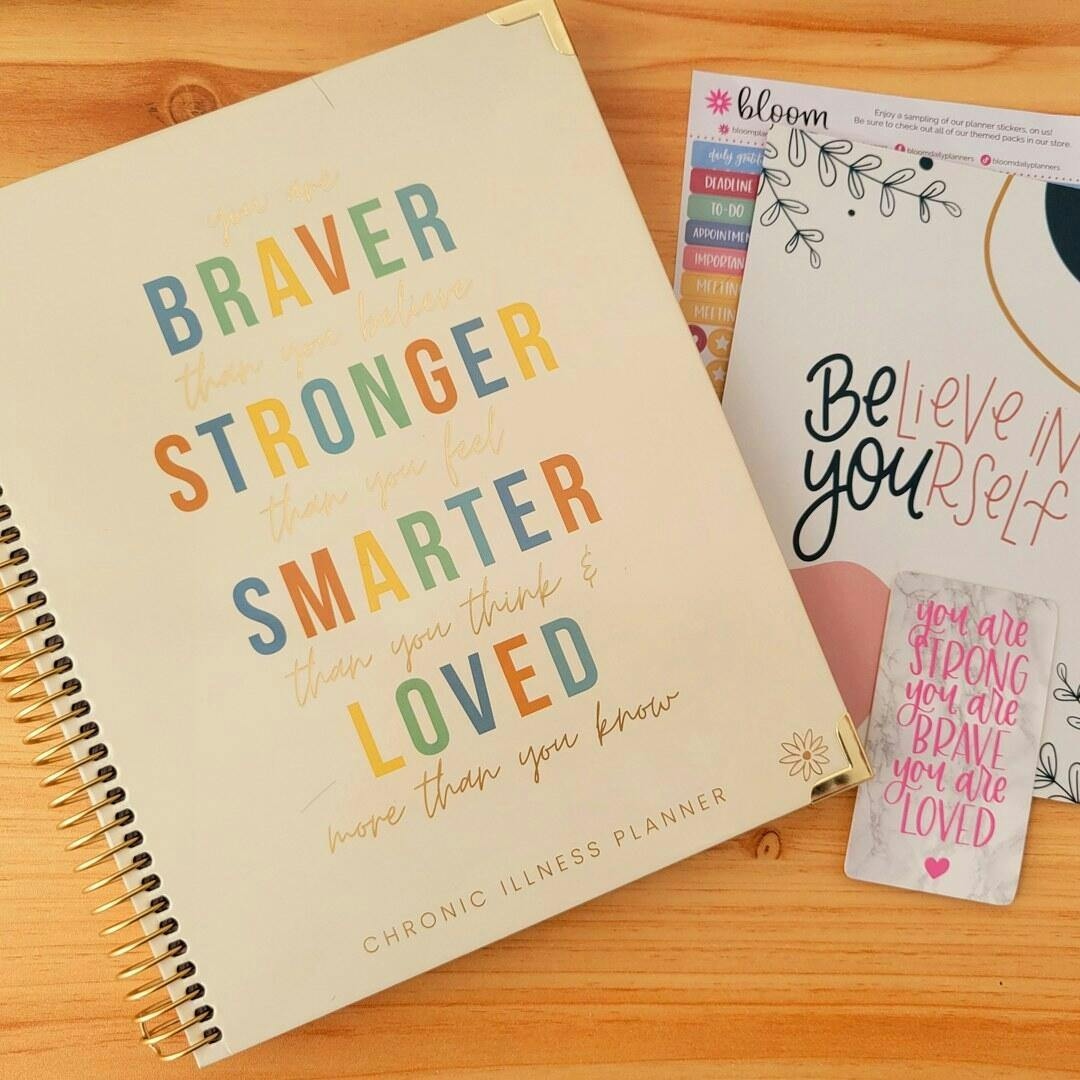 you are
BRAVER
than you believe
STRONGER
than you feel
SMARTER
than you think &
LOVED
more than you know
CHRONIC ILLNESS PLANNER
bloom
Enjoy a sampling of our planner stickers, on us!
Be sure to check out all of our themed packs in our store.
bloomdailyplanners
bloomdailyplanners
daily
DEADLINE
TO-DO
BELIEVE IN
YOURSELF
you are
STRONG
you are
BRAVE
you are
LOVED